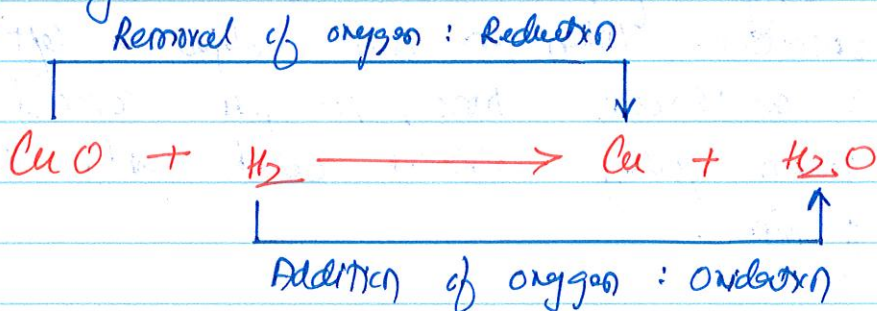 Removal of oxygen : Reduction
CuO + H₂ ⟶ Cu + H₂O
Addition of oxygen : Oxidation